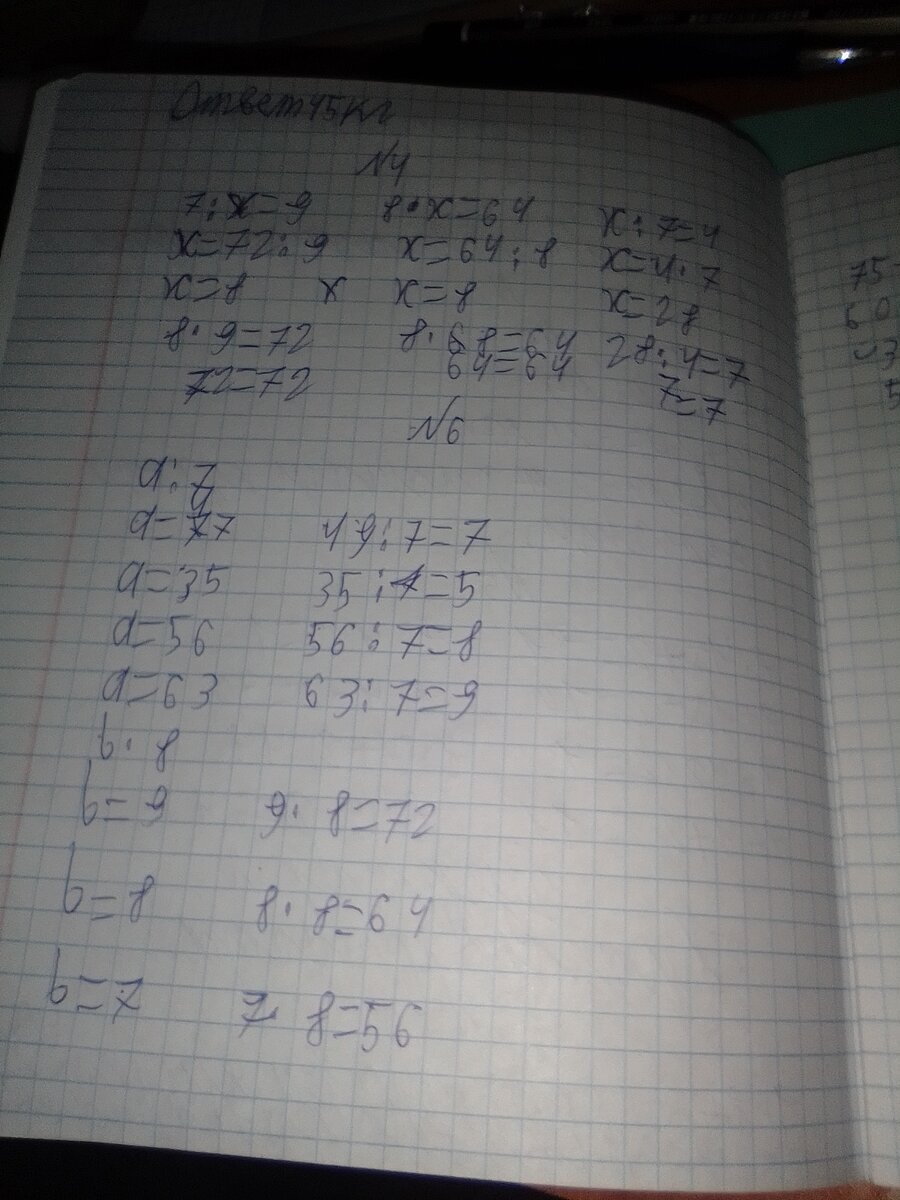 Ответ 45кг
№4
7:x=9 8·x=64 x:7=4
x=72:9 x=64:8 x=4·7
x=8 x x=8 x=28
8·9=72 8·8=64 28:4=7
72=72 64=64 7=7
№6
a:7
a=49 49:7=7
a=35 35:7=5
a=56 56:7=8
a=63 63:7=9
b·8
b=9 9·8=72
b=8 8·8=64
b=7 7·8=56
75
60
3
5